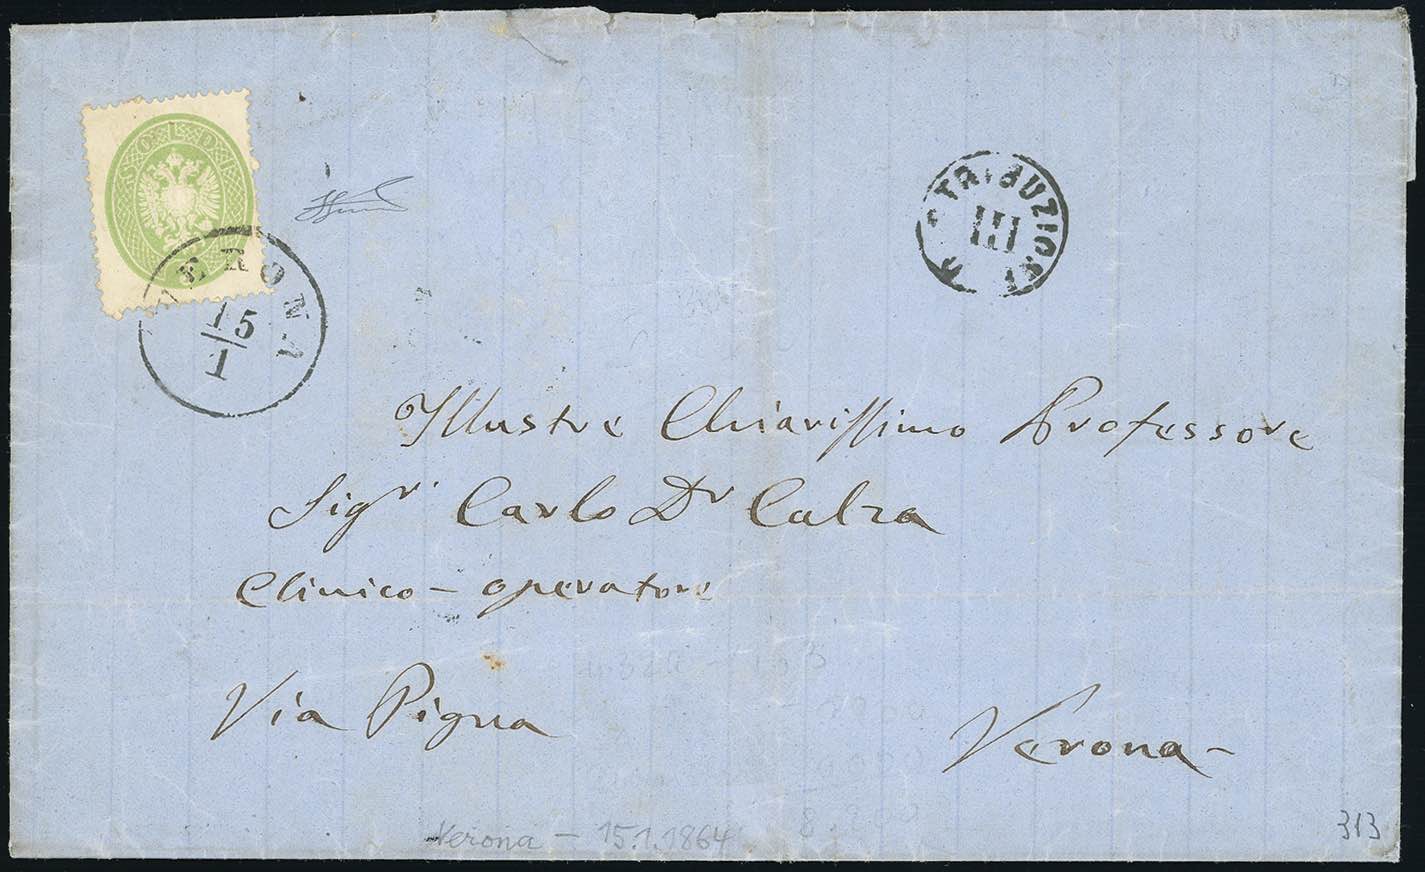 SOLDI
VERONA
15
1
DISTRIBUZIONI
III
Illustre Chiarissimo Professore
Sigr Carlo Dr Calza
Clinico - operatore
Via Pigna
Verona -
Verona - 15.1.1864
313